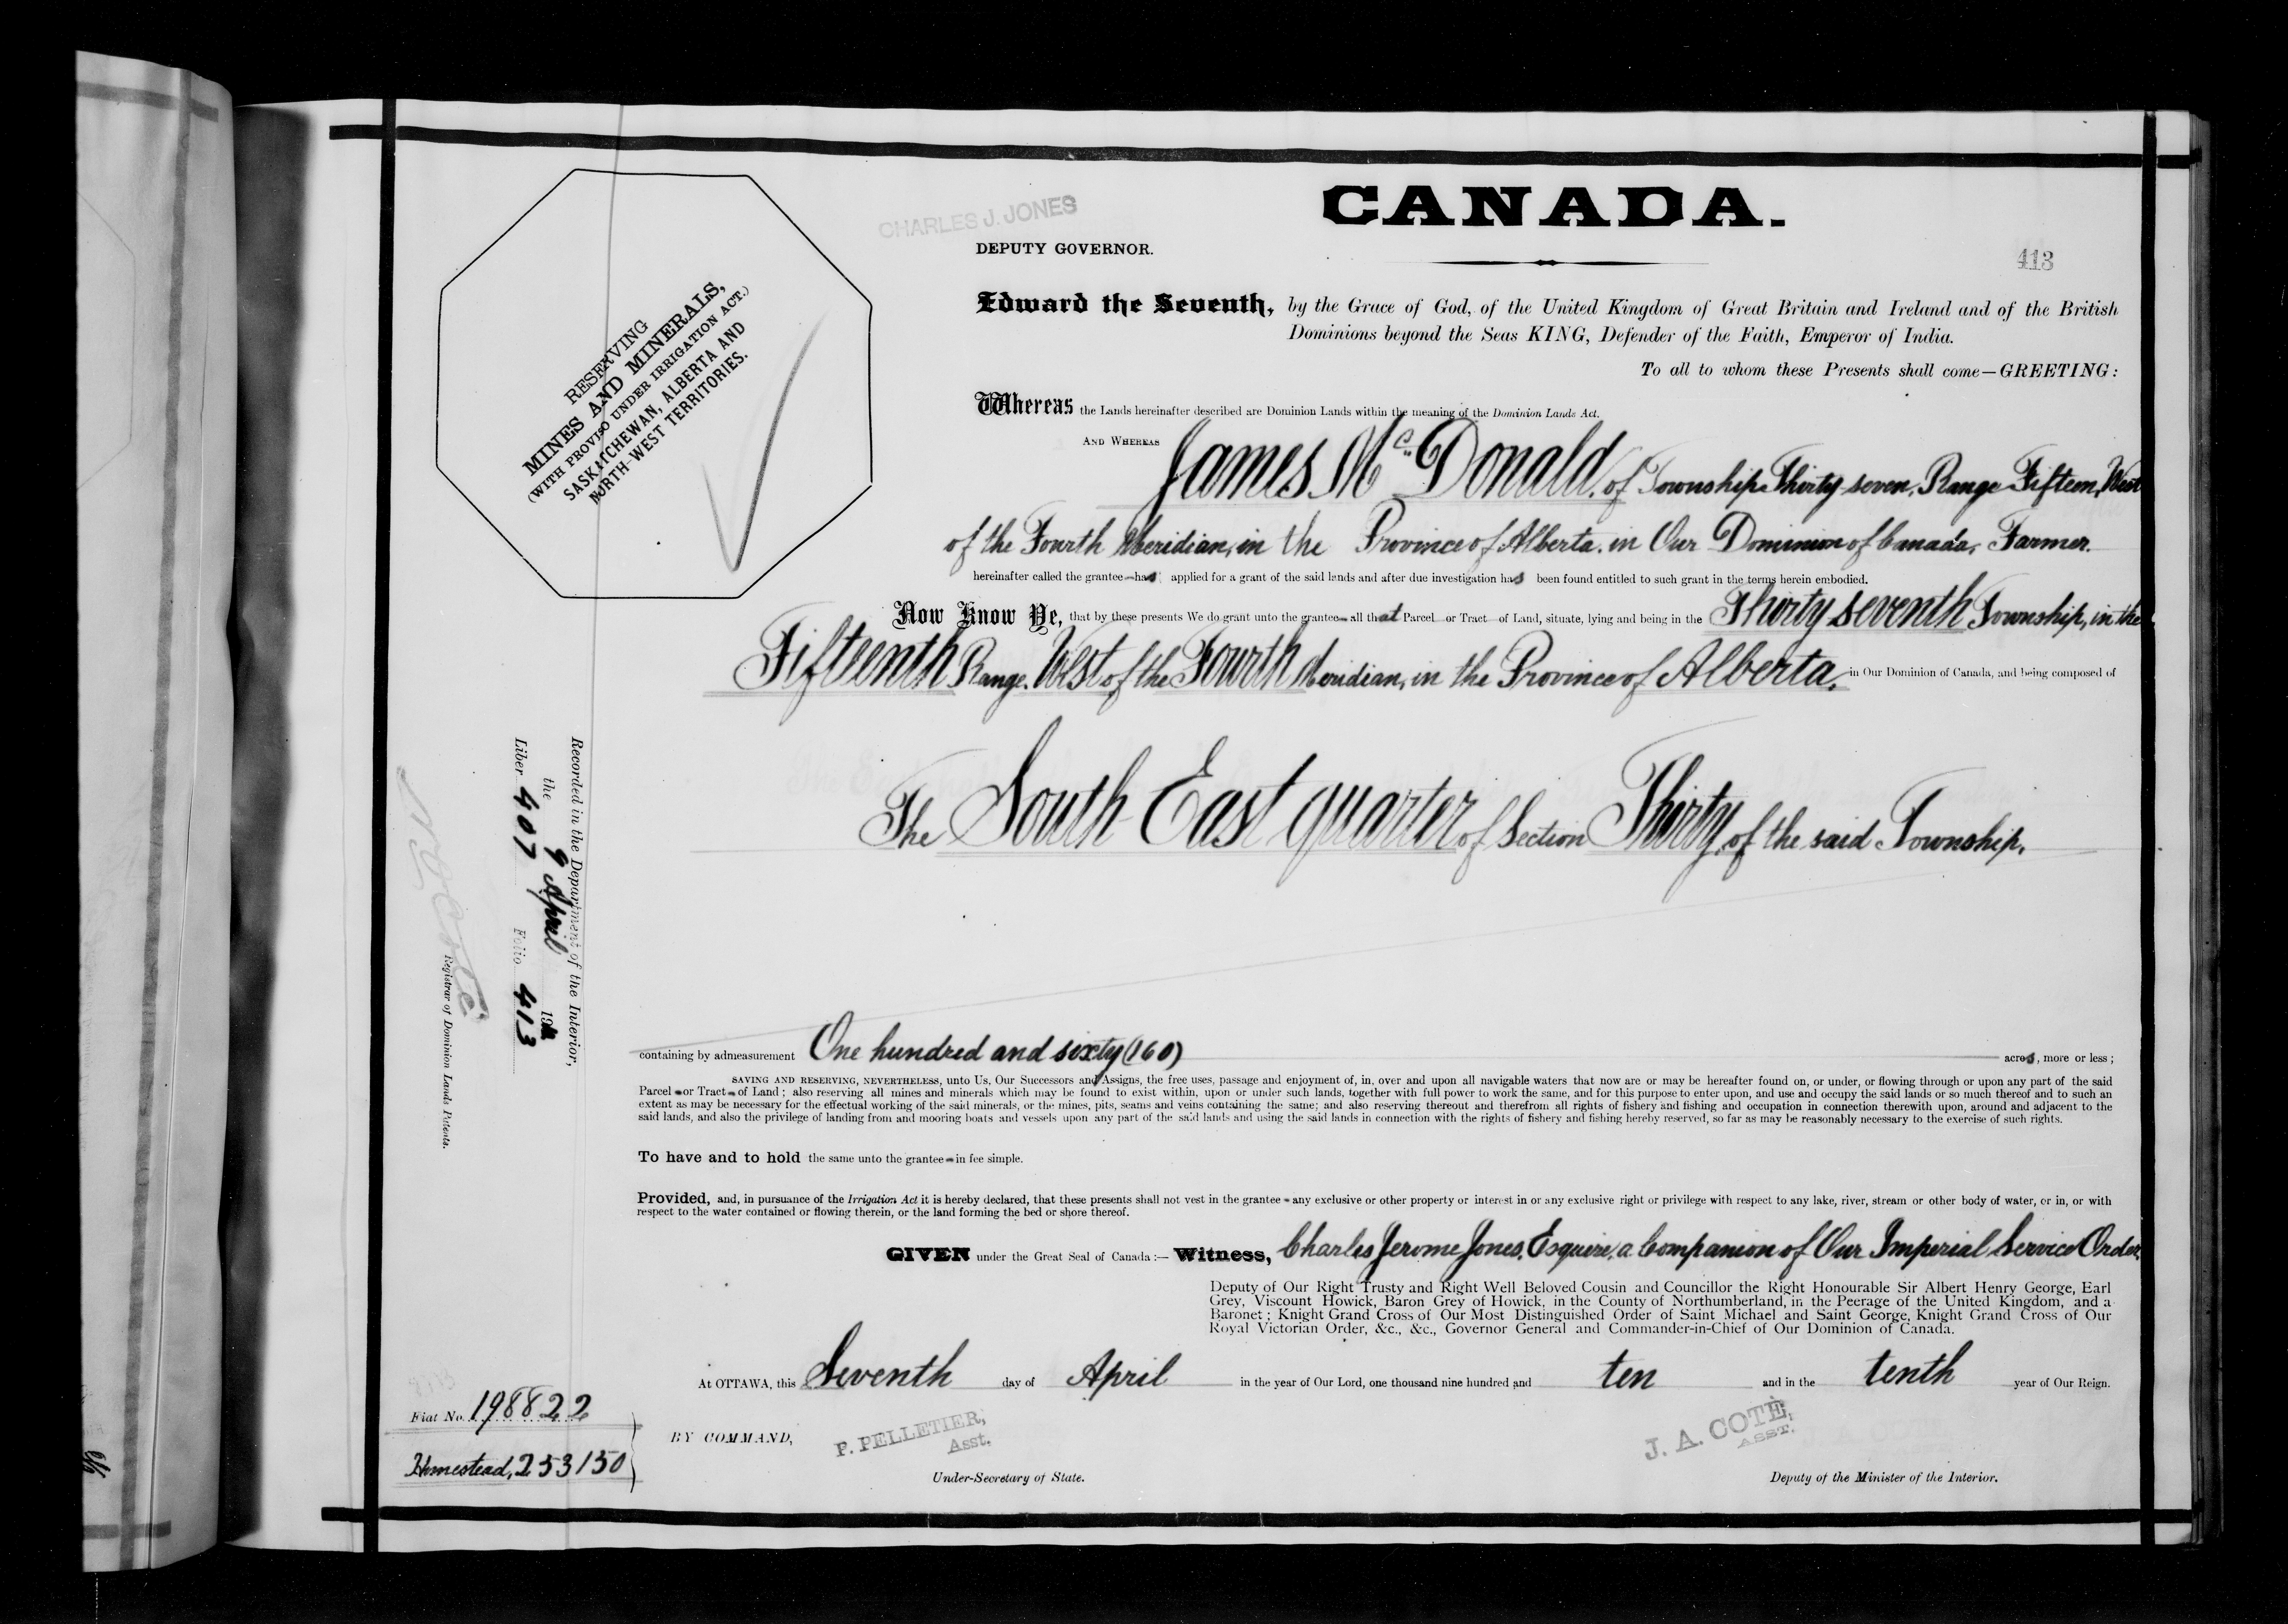 CANADA.
CHARLES J. JONES
DEPUTY GOVERNOR.
413
RESERVING
MINES AND MINERALS,
(WITH PROVISO UNDER IRRIGATION ACT.)
SASKATCHEWAN, ALBERTA AND
NORTH-WEST TERRITORIES.
Edward the Seventh, by the Grace of God, of the United Kingdom of Great Britain and Ireland and of the British
Dominions beyond the Seas KING, Defender of the Faith, Emperor of India.
To all to whom these Presents shall come—GREETING:
Whereas the Lands hereinafter described are Dominion Lands within the meaning of the Dominion Lands Act.
AND WHEREAS James McDonald, of Township Thirty-seven, Range Fifteen, West
of the Fourth Meridian, in the Province of Alberta, in Our Dominion of Canada, Farmer.
hereinafter called the grantee has applied for a grant of the said lands and after due investigation has been found entitled to such grant in the terms herein embodied.
Now Know Ye, that by these presents We do grant unto the grantee all that Parcel or Tract of Land, situate, lying and being in the Thirty seventh Township, in the
Fifteenth Range, West of the Fourth Meridian, in the Province of Alberta, in Our Dominion of Canada, and being composed of
The South East quarter of Section Thirty, of the said Township,
Recorded in the Department of the Interior,
the 9 April 19
Liber 407 Folio 413
N. O. COTÉ
Registrar of Dominion Lands Patents.
containing by admeasurement One hundred and sixty (160) acres, more or less;
SAVING AND RESERVING, NEVERTHELESS, unto Us, Our Successors and Assigns, the free uses, passage and enjoyment of, in, over and upon all navigable waters that now are or may be hereafter found on, or under, or flowing through or upon any part of the said
Parcel or Tract of Land; also reserving all mines and minerals which may be found to exist within, upon or under such lands, together with full power to work the same, and for this purpose to enter upon, and use and occupy the said lands or so much thereof and to such an
extent as may be necessary for the effectual working of the said minerals, or the mines, pits, seams and veins containing the same; and also reserving thereout and therefrom all rights of fishery and fishing and occupation in connection therewith upon, around and adjacent to the
said lands, and also the privilege of landing from and mooring boats and vessels upon any part of the said lands and using the said lands in connection with the rights of fishery and fishing hereby reserved, so far as may be reasonably necessary to the exercise of such rights.
To have and to hold the same unto the grantee in fee simple.
Provided, and, in pursuance of the Irrigation Act it is hereby declared, that these presents shall not vest in the grantee any exclusive or other property or interest in or any exclusive right or privilege with respect to any lake, river, stream or other body of water, or in, or with
respect to the water contained or flowing therein, or the land forming the bed or shore thereof.
GIVEN under the Great Seal of Canada:— Witness, Charles Jerome Jones, Esquire, a Companion of Our Imperial Service Order,
Deputy of Our Right Trusty and Right Well Beloved Cousin and Councillor the Right Honourable Sir Albert Henry George, Earl
Grey, Viscount Howick, Baron Grey of Howick, in the County of Northumberland, in the Peerage of the United Kingdom, and a
Baronet; Knight Grand Cross of Our Most Distinguished Order of Saint Michael and Saint George, Knight Grand Cross of Our
Royal Victorian Order, &c., &c., Governor General and Commander-in-Chief of Our Dominion of Canada.
At OTTAWA, this Seventh day of April in the year of Our Lord, one thousand nine hundred and ten and in the tenth year of Our Reign.
Fiat No. 198822
Homestead, 253150
BY COMMAND,
P. PELLETIER,
Asst.
Under-Secretary of State.
J. A. COTÉ,
ASST.
Deputy of the Minister of the Interior.